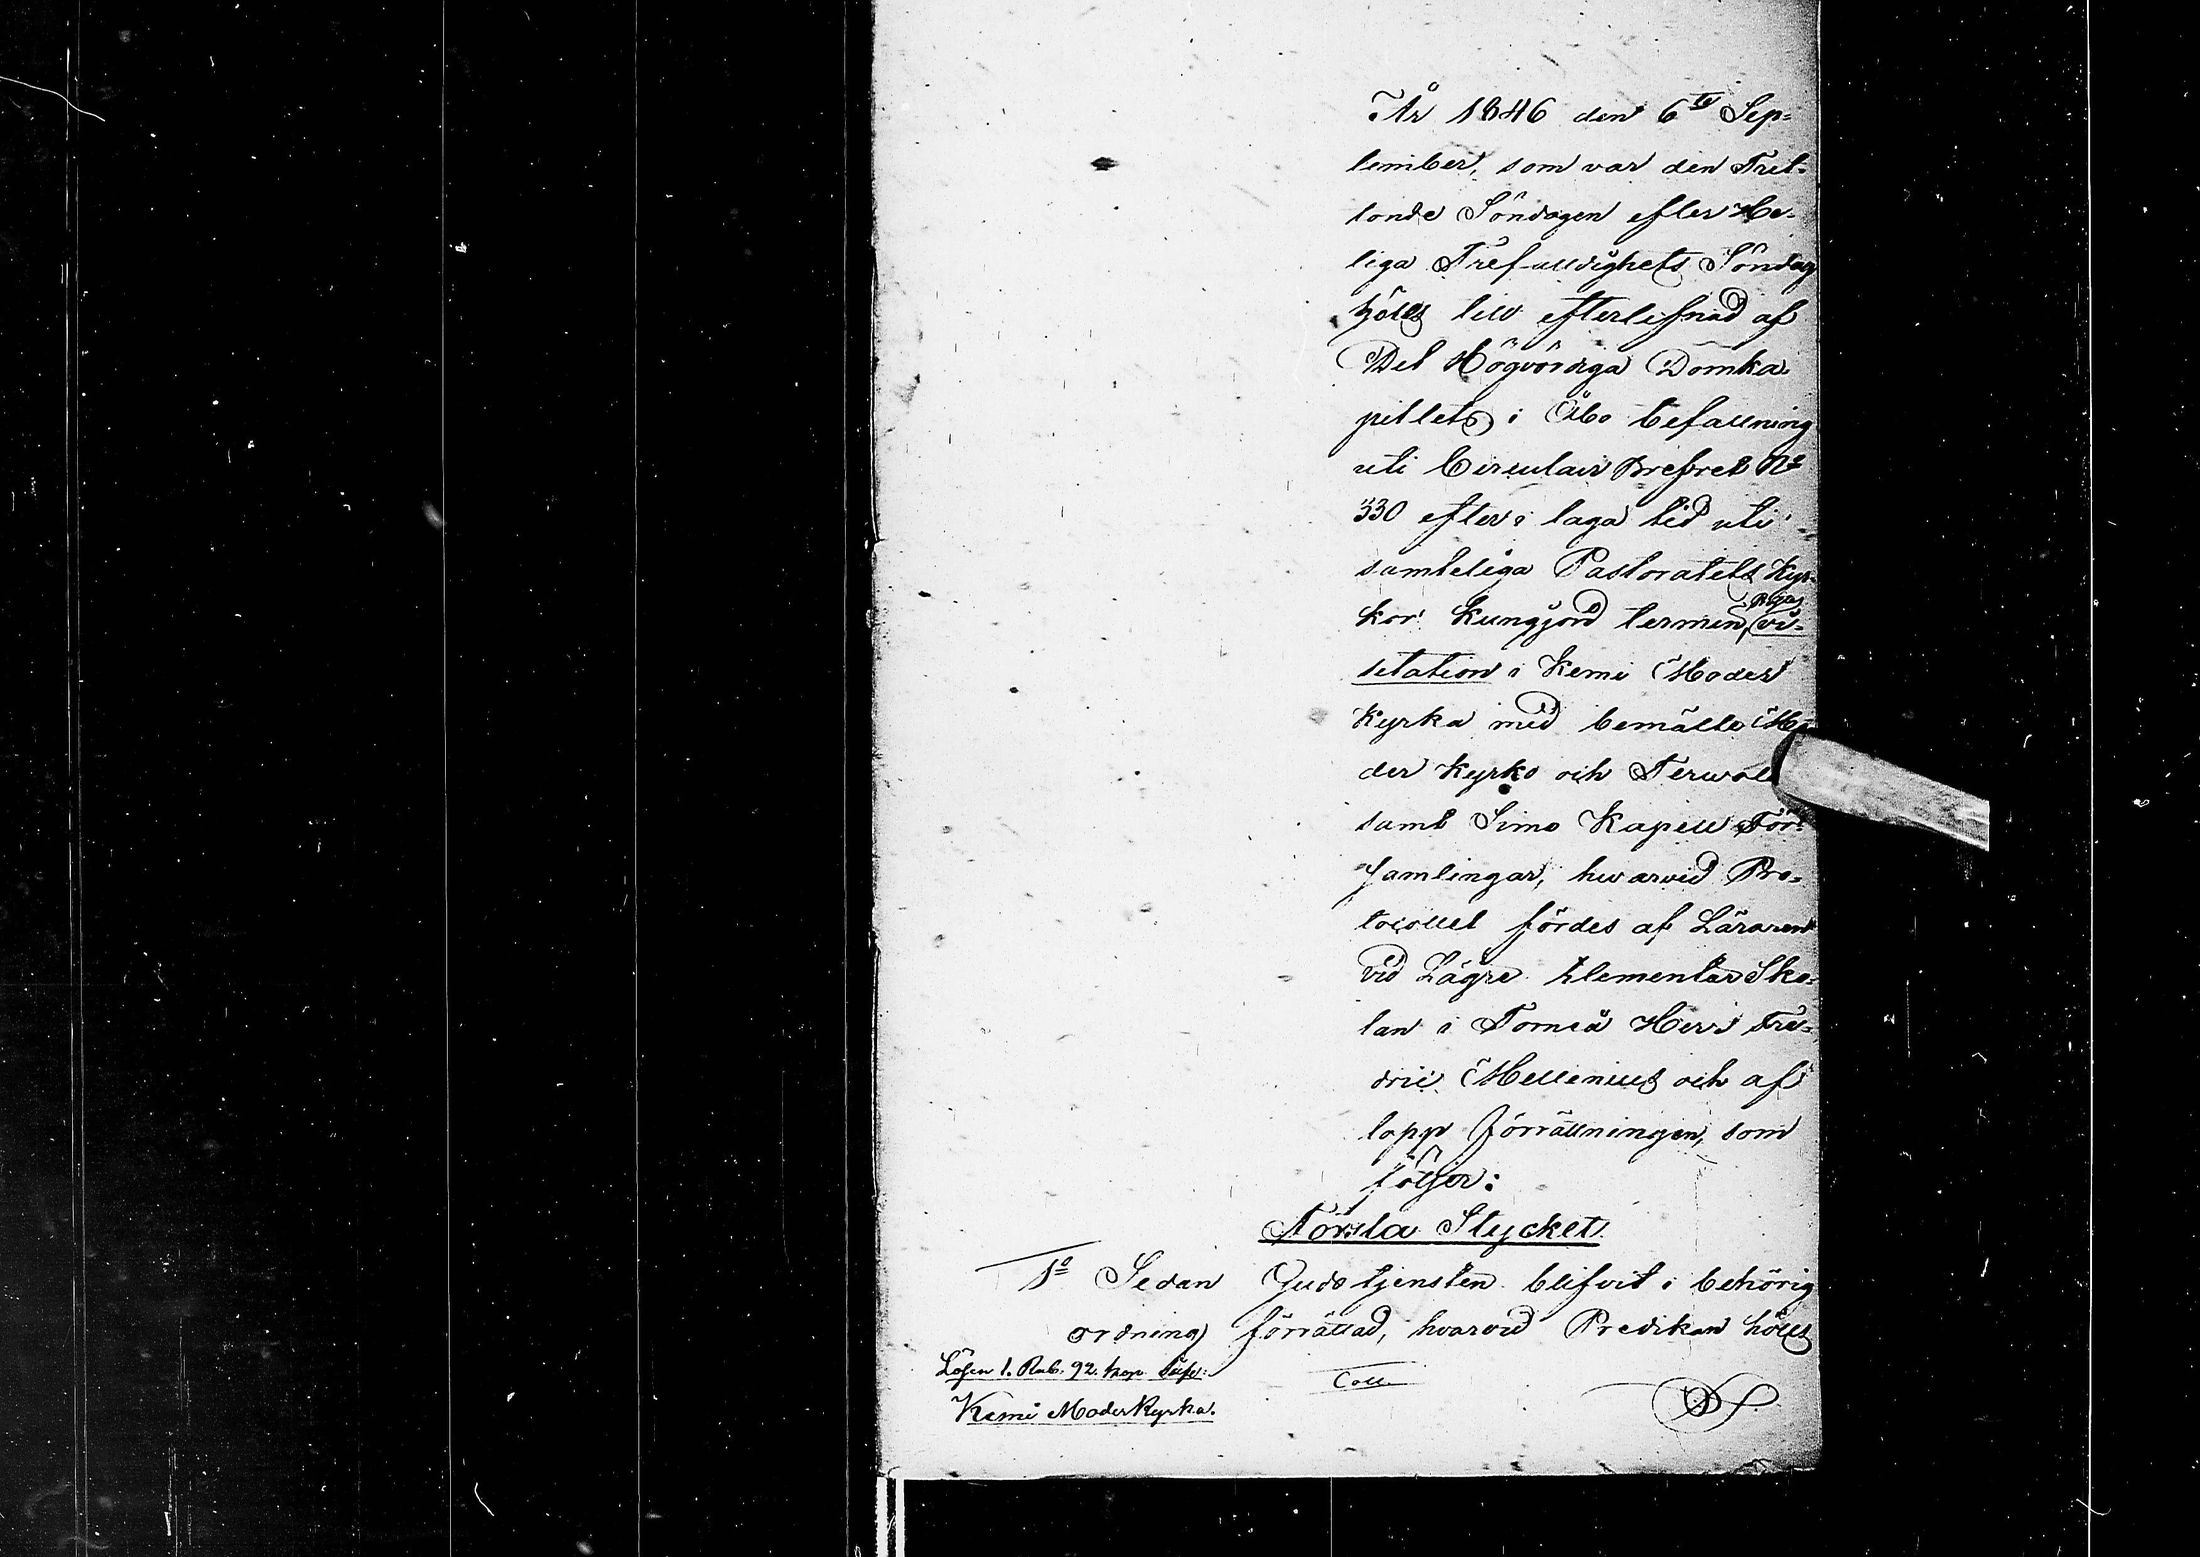 År 1846 den 6te Sep-
tember, som var den Tret-
tonde Söndagen efter He-
liga Trefalldighets Söndag
hölls till efterlefnad af
Det Högvördiga Domka-
pitlets i Åbo befallning
uti Circulair Brefvet No
330 efter i laga tid uti
samteliga Pastoratets Kyr-
kor kungjord termin, vi-
sitation i Kemi Moder
Kyrka med bemälte Mo-
der Kyrko och Terwola
samt Simo Kapell För-
samlingar, hwarvid Pro-
tocollet fördes af Läraren
vid Lägre Elementar Sko-
lan i Torneå Herr Fre-
dric Hellenius och af
lopp förrättningen, som
följer:
Första Stycket.
1o Sedan Gudstjensten blifvit i behörig
ordning förrättad, hvarvid Predikan hölls
Lösen 1. Rub. 92. kop. Silfv:
Coll
Kemi Moderkyrka.